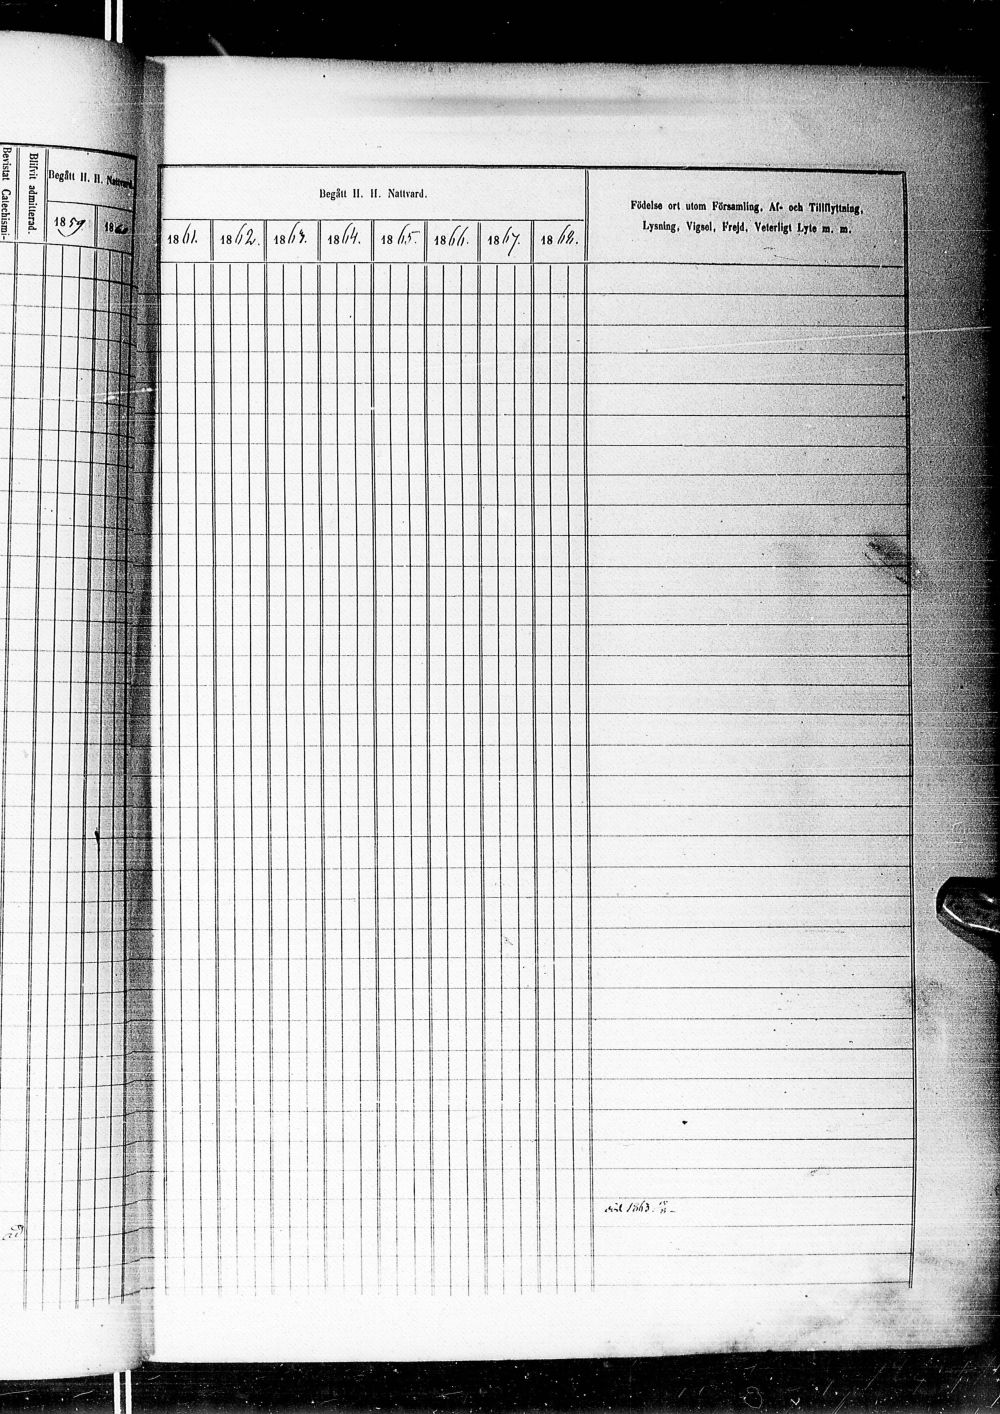 Bevistat Catechismi-
Blifvit admitterad.
Begått H. H. Nattvard.
1859
1860
Begått H. H. Nattvard.
1861. 1862. 1863. 1864. 1865. 1866. 1867. 1868.
Födelse ort utom Församling, Af- och Tillflyttning,
Lysning, Vigsel, Frejd, Veterligt Lyte m. m.
död 1863.